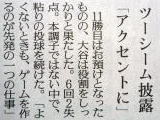 ツーシーム披露
「アクセントに」
11勝目はお預けとなった
ものの、大谷は役割をしっ
かりと果たした。6回2失
点。本調子ではない中で、
粘りの投球を続けた。「よ
くないときも、ゲームを作
るのが先発の一つの仕事」